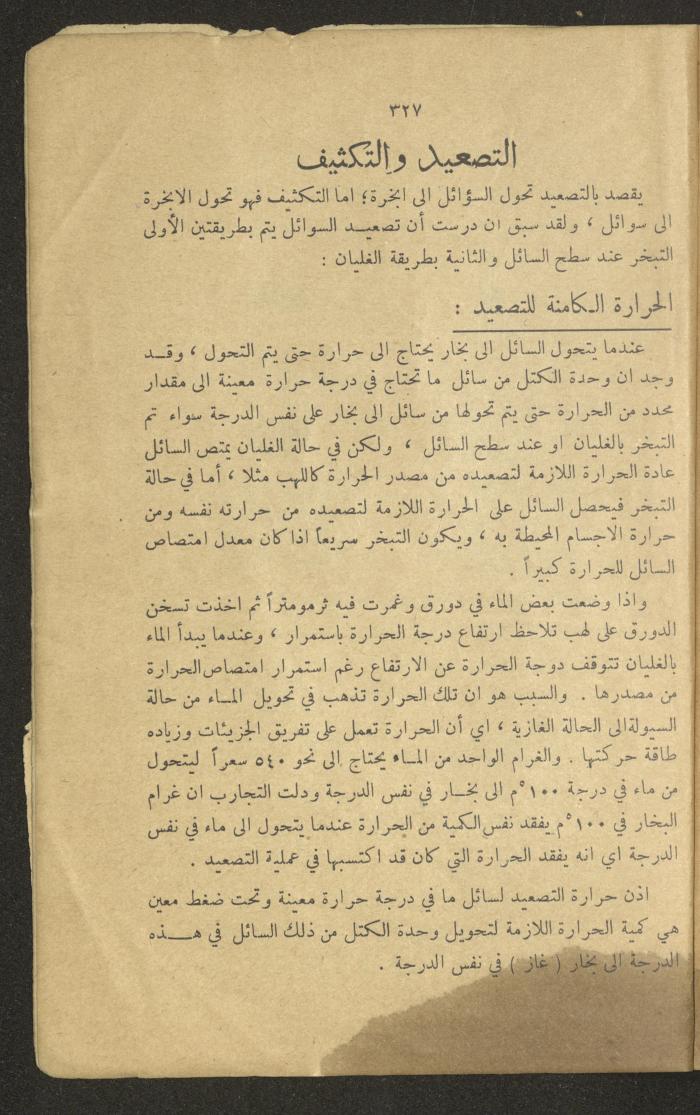 ٣٢٧
التصعيد والتكثيف
يقصد بالتصعيد تحول السؤائل الى ابخرة؛ اما التكثيف فهو تحول الابخرة
الى سوائل ، ولقد سبق ان درست أن تصعيد السوائل يتم بطريقتين الأولى
التبخر عند سطح السائل والثانية بطريقة الغليان :
الحرارة الكامنة للتصعيد :
عندما يتحول السائل الى بخار يحتاج الى حرارة حتى يتم التحول ، وقد
وجد ان وحدة الكتل من سائل ما تحتاج في درجة حرارة معينة الى مقدار
محدد من الحرارة حتى يتم تحولها من سائل الى بخار على نفس الدرجة سواء تم
التبخر بالغليان او عند سطح السائل ، ولكن في حالة الغليان يمتص السائل
عادة الحرارة اللازمة لتصعيده من مصدر الحرارة كاللهب مثلا ، أما في حالة
التبخر فيحصل السائل على الحرارة اللازمة لتصعيده من حرارته نفسه ومن
حرارة الاجسام المحيطة به ، ويكون التبخر سريعاً اذا كان معدل امتصاص
السائل للحرارة كبيراً .
واذا وضعت بعض الماء في دورق وغمرت فيه ثرمومتراً ثم اخذت تسخن
الدورق على لهب تلاحظ ارتفاع درجة الحرارة باستمرار ، وعندما يبدأ الماء
بالغليان تتوقف دوجة الحرارة عن الارتفاع رغم استمرار امتصاص الحرارة
من مصدرها . والسبب هو ان تلك الحرارة تذهب في تحويل الماء من حالة
السيولة الى الحالة الغازية ، اي أن الحرارة تعمل على تفريق الجزيئات وزياده
طاقة حركتها . والغرام الواحد من الماء يحتاج الى نحو ٥٤٠ سعراً ليتحول
من ماء في درجة ١٠٠°م الى بخار في نفس الدرجة ودلت التجارب ان غرام
البخار في ١٠٠°م يفقد نفس الكمية من الحرارة عندما يتحول الى ماء في نفس
الدرجة اي انه يفقد الحرارة التي كان قد اكتسبها في عملية التصعيد .
اذن حرارة التصعيد لسائل ما في درجة حرارة معينة وتحت ضغط معين
هي كمية الحرارة اللازمة لتحويل وحدة الكتل من ذلك السائل في هذه
الدرجة الى بخار ( غاز ) في نفس الدرجة .